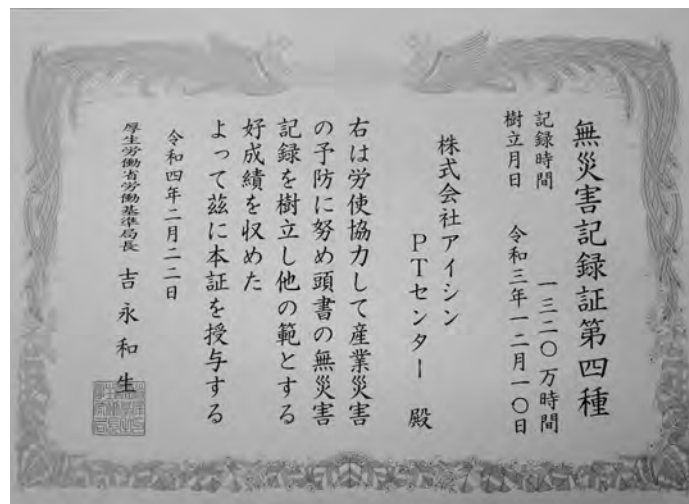 無災害記録証第四種
記録時間　一三二〇万時間
樹立月日　令和三年一二月一〇日
株式会社アイシン
PTセンター　殿
右は労使協力して産業災害
の予防に努め頭書の無災害
記録を樹立し他の範とする
好成績を収めた
よって茲に本証を授与する
令和四年二月二二日
厚生労働省労働基準局長　吉永和生